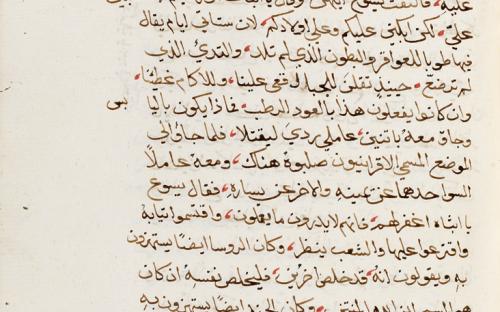 عليّ، لكن ابكين عليكم وعلي اولادكم، لان ستاتي ايام يقال
فيها طوبا للعواقر والبطون الذي لم تلد، والثدي الذي
لم ترضع، حينيذٍ تقلن للجبال قعي علينا، وللاكام غطينا،
وان كانوا يفعلون هذا بالعود الرطب، فماذا يكون باليابس
وجاؤ معه باثنين عاملي ردي ليقتلا، فلما جاؤ الي
الموضع المسمي الاقرانيون صلبوه هناك، ومعه عاملا
السو احدهما عن يمينه والاخر عن يساره، فقال يسوع
يا ابتاه اغفر لهم، فانهم لا يدرون ما يفعلون، واقتسموا ثيابه
واقترعوا عليها والشعب ينظر، وكان الروسا ايضًا يستهزون
به ويقولون انه قد خلص اخرين، فليخلص نفسه ان كان
هو المسيح ابن الله المنتخب، وكان الجند ايضًا يستهزون به